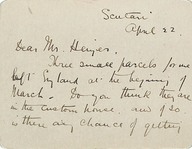 Scutari
April 22.
Dear Mr. Heizer.
Three small parcels for me
left England at the beginning of
March. Do you think they are
in the Custom House, and if so
is there any chance of getting